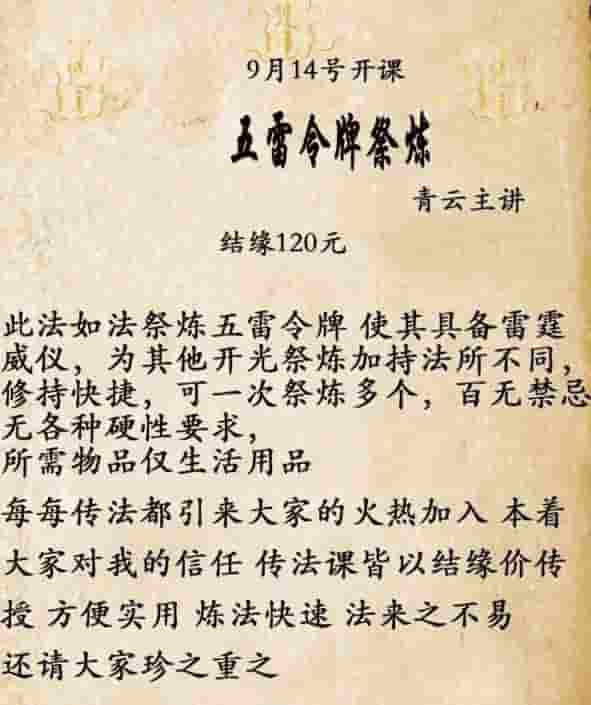 9月14号开课
五雷令牌祭炼
青云主讲
结缘120元
此法如法祭炼五雷令牌 使其具备雷霆
威仪，为其他开光祭炼加持法所不同，
修持快捷，可一次祭炼多个，百无禁忌
无各种硬性要求，
所需物品仅生活用品
每每传法都引来大家的火热加入 本着
大家对我的信任 传法课皆以结缘价传
授 方便实用 炼法快速 法来之不易
还请大家珍之重之